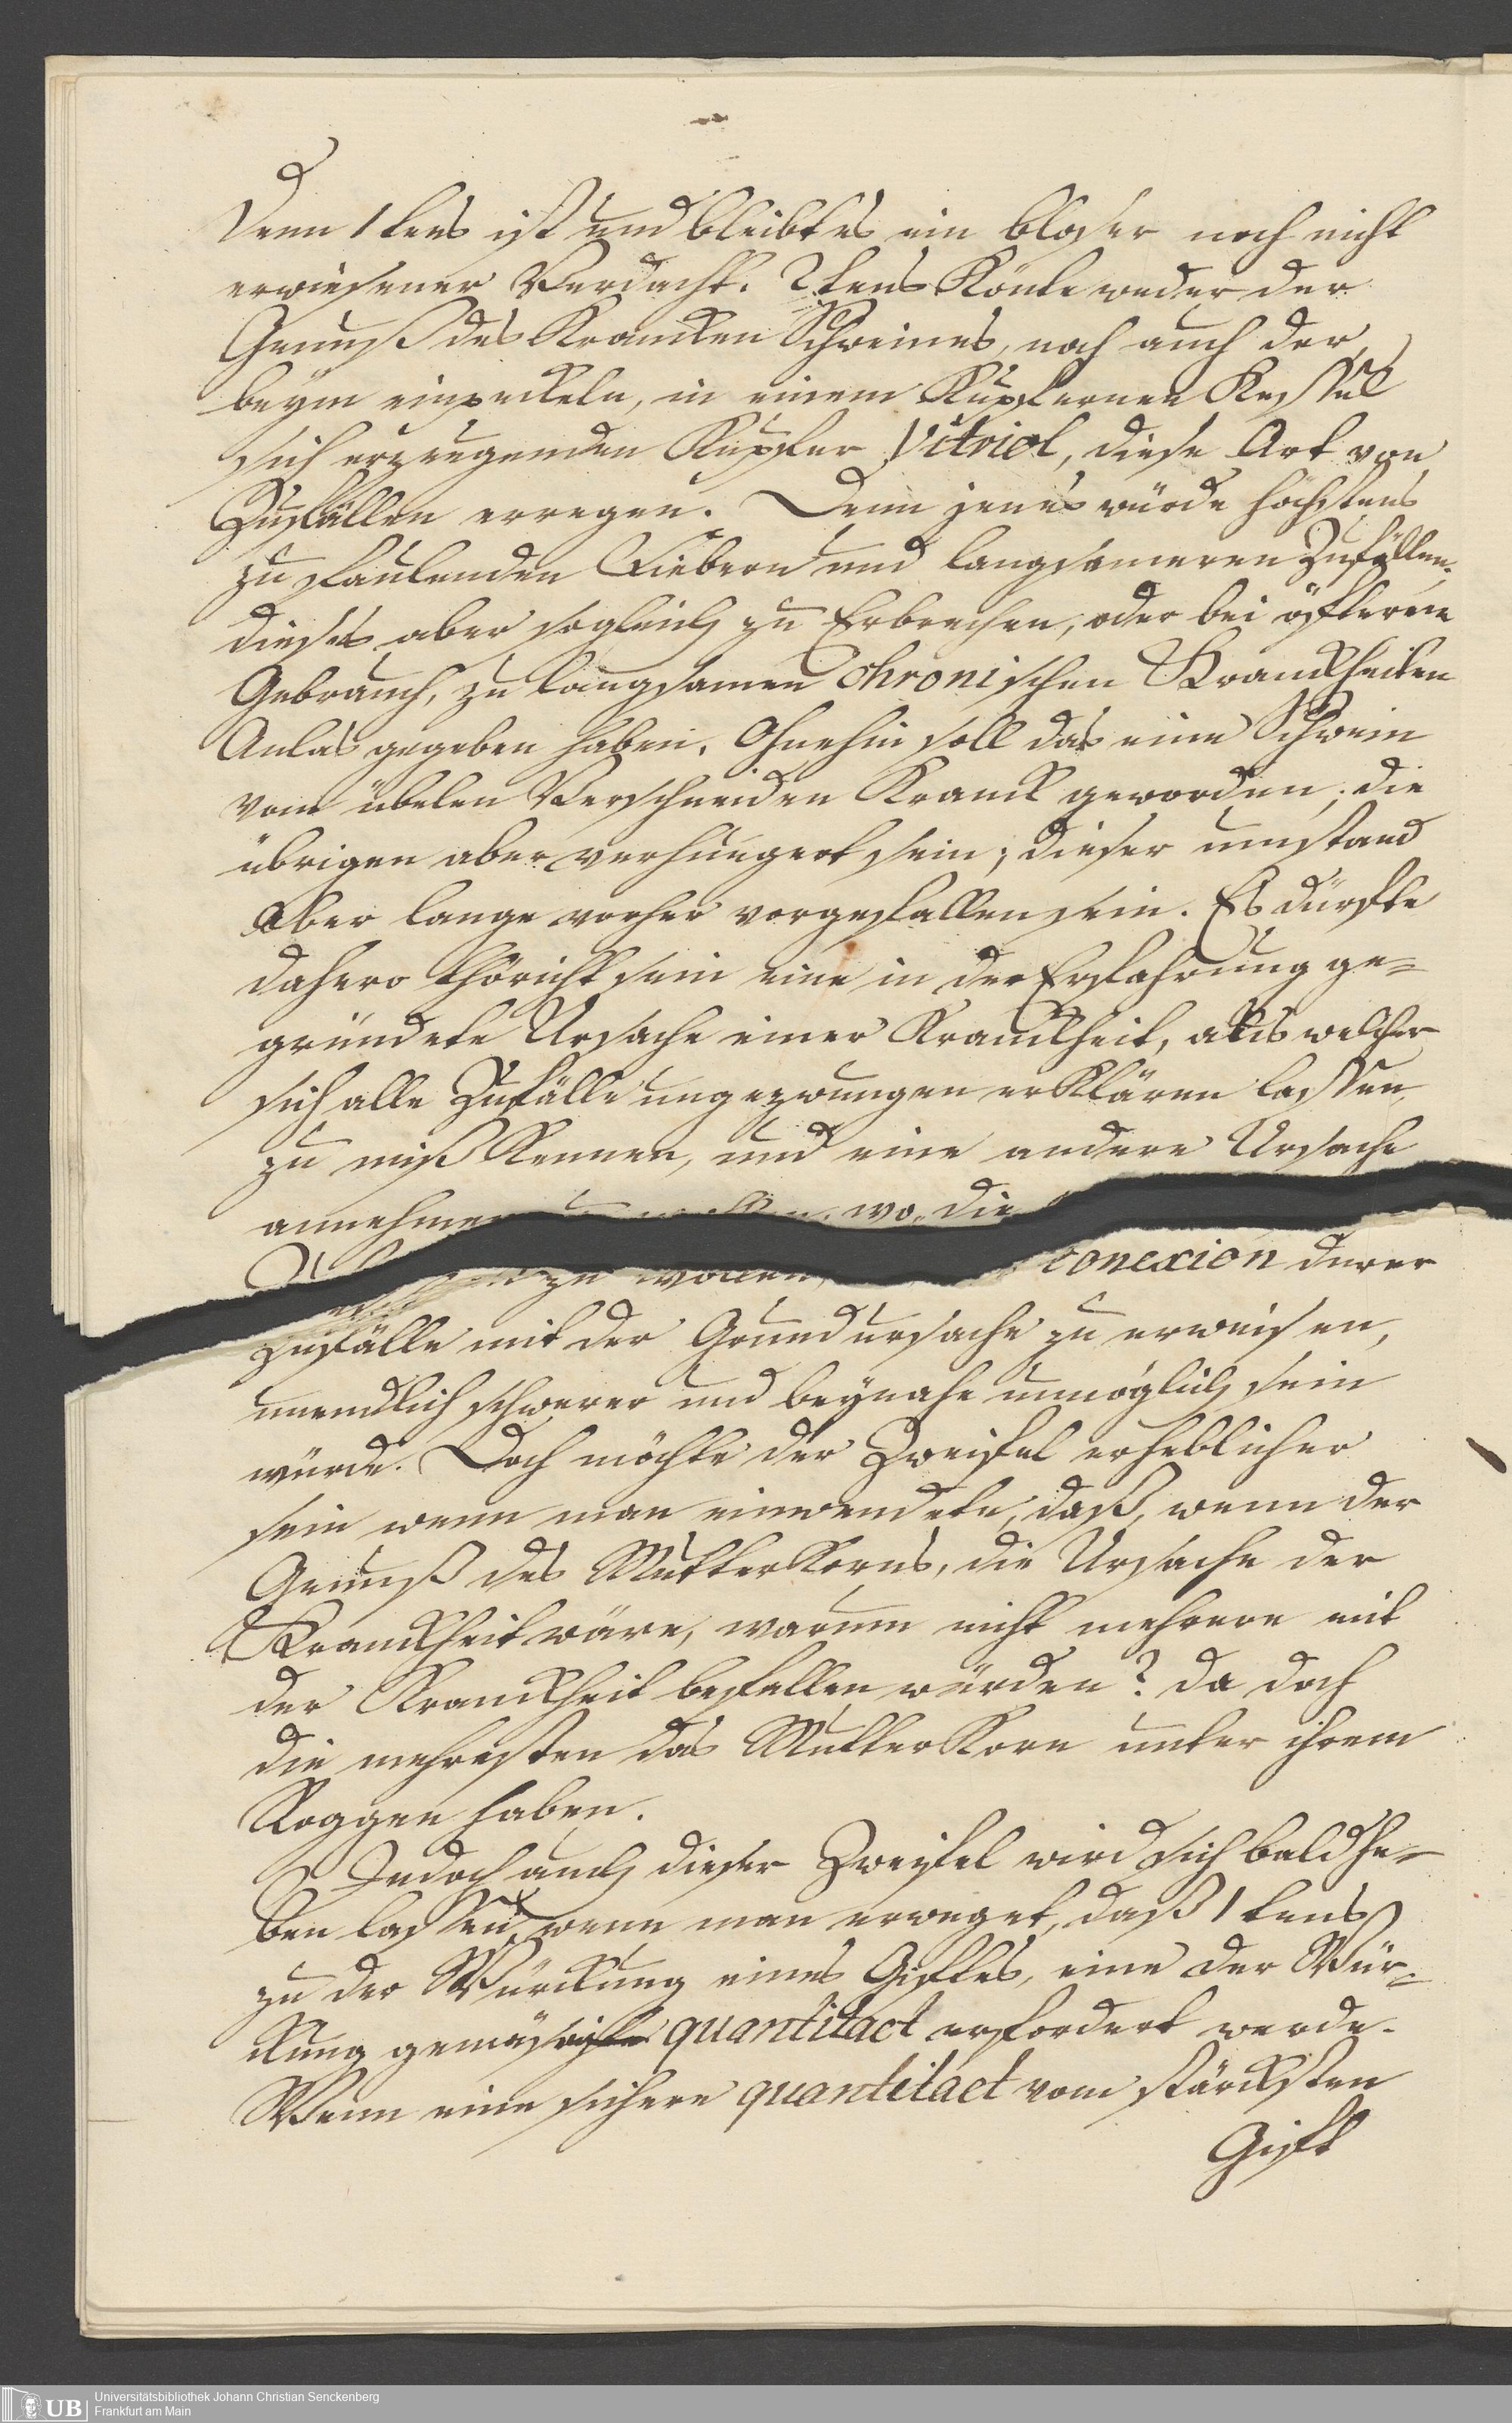 Denn 1tens ist und bleibt es ein bloser noch nicht
erwiesener Verdacht. 2tens Könte weder der
Genuß des Krancken Schweines, noch auch der,
beym einpeckeln, in einem Kupfernen Kessel
sich erzeugenden Kupfer Vitriol, diese Art von
Zufällen erregen. Denn jenes würde höchstens
zu faulenden Fiebern und langsameren Zufällen,
dieses aber sogleich zu Erbrechen, oder bei öfteren
Gebrauch, zu langsamen chronischen Kranckheiten
Anlas gegeben haben. Ohnehin soll das eine Schwein
vom übelen Verschneiden Kranck geworden, die
übrigen aber verhungert sein; dieser umstand
aber lange vorher vorgefallen sein. Es dürfte
dahero thöricht sein eine in der Erfahrung ge-
gründete Ursache einer Kranckheit, aus welcher
sich alle Zufälle ungezwungen erklären lassen,
zu mißkennen, und eine andere Ursache
annehmen zu wollen, wo die conexion derer
Zufälle mit der Grundursache zu erweisen,
unendlich schwerer und beynahe unmöglich sein
würde. Doch möchte der Zweifel erheblicher
sein wenn man einwendete, daß, wenn der
Genuß des Mutterkorns, die Ursache der
Kranckheit wäre, warum nicht mehrere mit
der Kranckheit befallen würden? da doch
die mehresten das Mutterkorn unter ihrem
Roggen haben.
Jedoch auch dieser Zweifel wird sich bald he-
ben lassen, wenn man erweget, daß 1tens
zu der Würckung eines Giftes, eine der Wür-
ckung gemäse quantitaet erfordert werde.
Wenn eine sichere quantitaet vom stärcksten
Gift
UB
Universitätsbibliothek Johann Christian Senckenberg
Frankfurt am Main